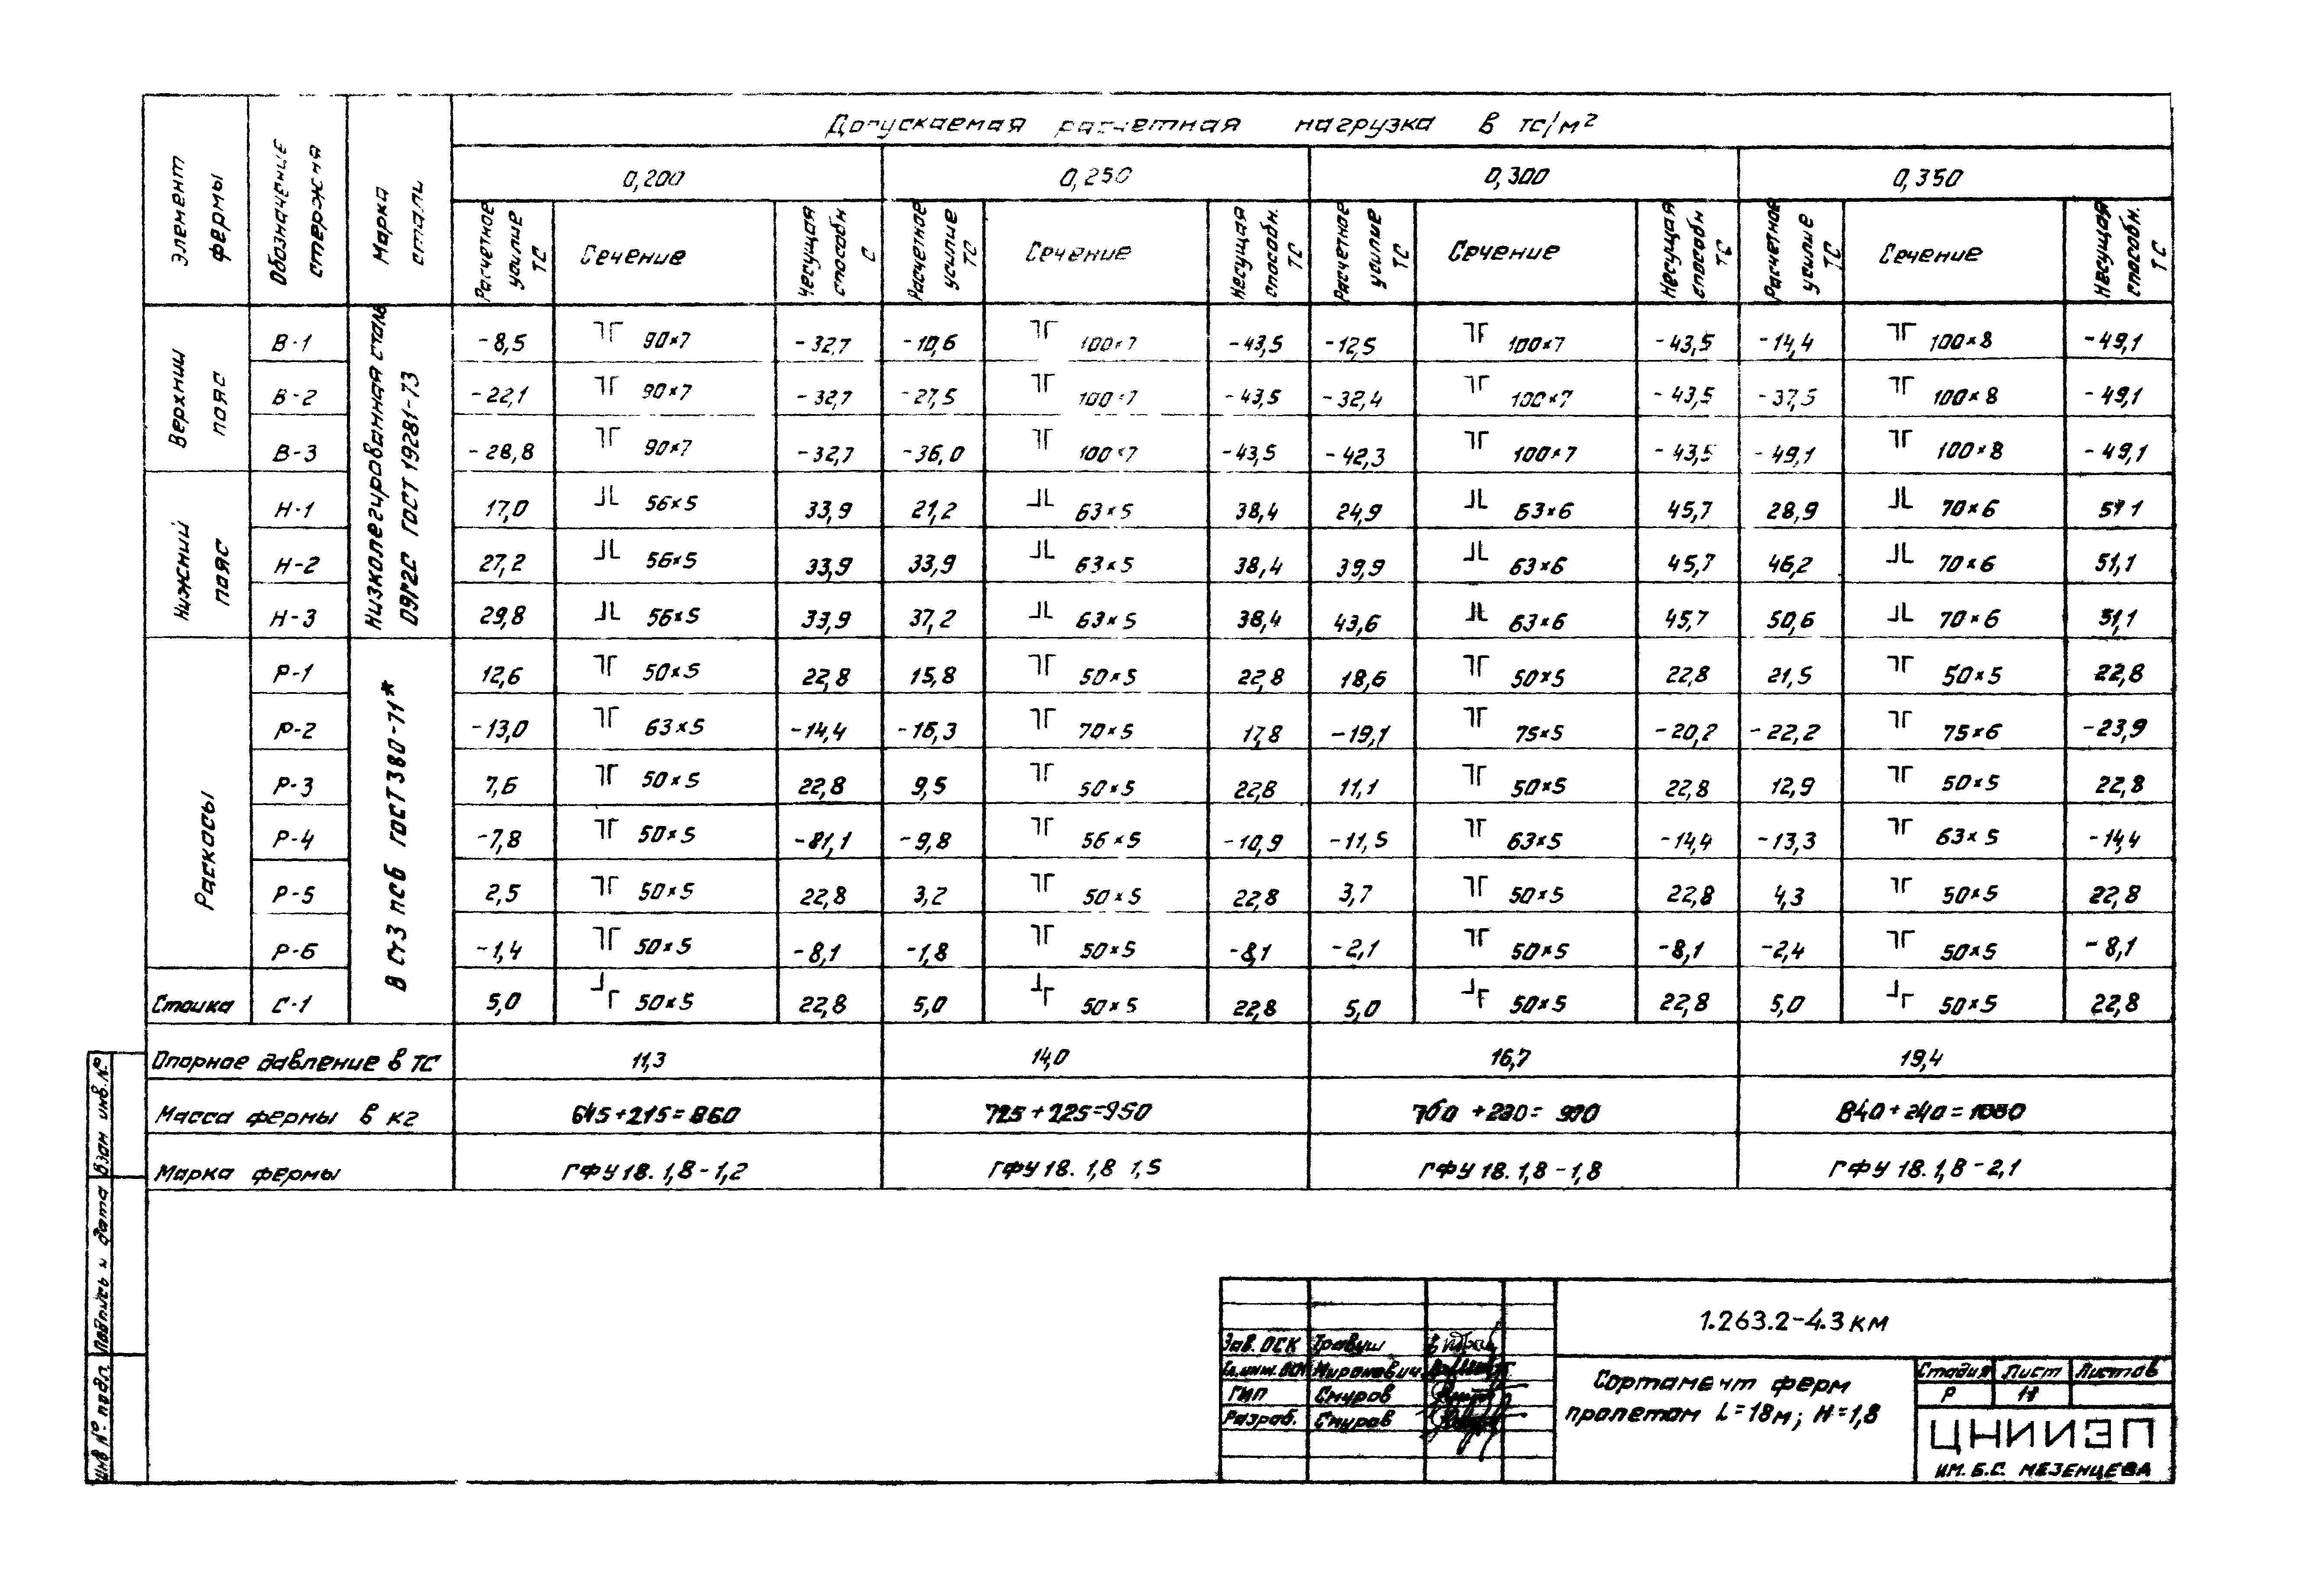 Допускаемая расчетная нагрузка в тс/м²
Элемент фермы Обозначение стержня Марка стали 0,200 0,250 0,300 0,350
Расчетное усилие ТС Сечение Несущая способн С Расчетное усилие ТС Сечение Несущая способн. ТС Расчетное усилие ТС Сечение Несущая способн ТС Расчетное усилие ТС Сечение Несущая способн. ТС
Верхний пояс
Низколегированная сталь 09Г2С ГОСТ 19281-73
В-1 -8,5 90×7 -32,7 -10,6 100×7 -43,5 -12,5 100×7 -43,5 -14,4 100×8 -49,1
В-2 -22,1 90×7 -32,7 -27,5 100×7 -43,5 -32,4 100×7 -43,5 -37,5 100×8 -49,1
В-3 -28,8 90×7 -32,7 -36,0 100×7 -43,5 -42,3 100×7 -43,5 -49,1 100×8 -49,1
Нижний пояс
Н-1 17,0 56×5 33,9 21,2 63×5 38,4 24,9 63×6 45,7 28,9 70×6
Н-2 27,2 56×5 33,9 33,9 63×5 38,4 39,9 63×6 45,7 46,2 70×6 51,1
Н-3 29,8 56×5 33,9 37,2 63×5 38,4 43,6 63×6 45,7 50,6 70×6 51,1
Раскосы
В Ст3 пс6 ГОСТ 380-71*
Р-1 12,6 50×5 22,8 15,8 50×5 22,8 18,6 50×5 22,8 21,5 50×5 22,8
Р-2 -13,0 63×5 -14,4 -16,3 70×5 17,8 -19,1 75×5 -20,2 -22,2 75×6 -23,9
Р-3 7,6 50×5 22,8 9,5 50×5 22,8 11,1 50×5 22,8 12,9 50×5 22,8
Р-4 -7,8 50×5 -9,8 56×5 -10,9 -11,5 63×5 -14,4 -13,3 63×5 -14,4
Р-5 2,5 50×5 22,8 3,2 50×5 22,8 3,7 50×5 22,8 4,3 50×5 22,8
Р-6 -1,4 50×5 -8,1 -1,8 50×5 -8,1 -2,1 50×5 -8,1 -2,4 50×5 -8,1
Стойка С-1 5,0 50×5 22,8 5,0 50×5 22,8 5,0 50×5 22,8 5,0 50×5 22,8
Опорное давление в ТС 11,3 14,0 16,7 19,4
Масса фермы в кг 645+215=860 725+225=950 760+230= 840+240=
Марка фермы ГФУ 18.1,8-1,2 ГФУ 18.1,8 1,5 ГФУ 18.1,8-1,8 ГФУ 18.1,8-2,1
Взам инв.№
Подпись и дата
Инв № подл.
1.263.2-4.3 КМ
Зав. ОСК Травуш
Миронович
ГИП Смуров
Разраб. Смуров
Сортамент ферм
пролетом L=18м; H=1,8
Стадия Лист Листов
Р
ЦНИИЭП
ИМ. Б.С. МЕЗЕНЦЕВА